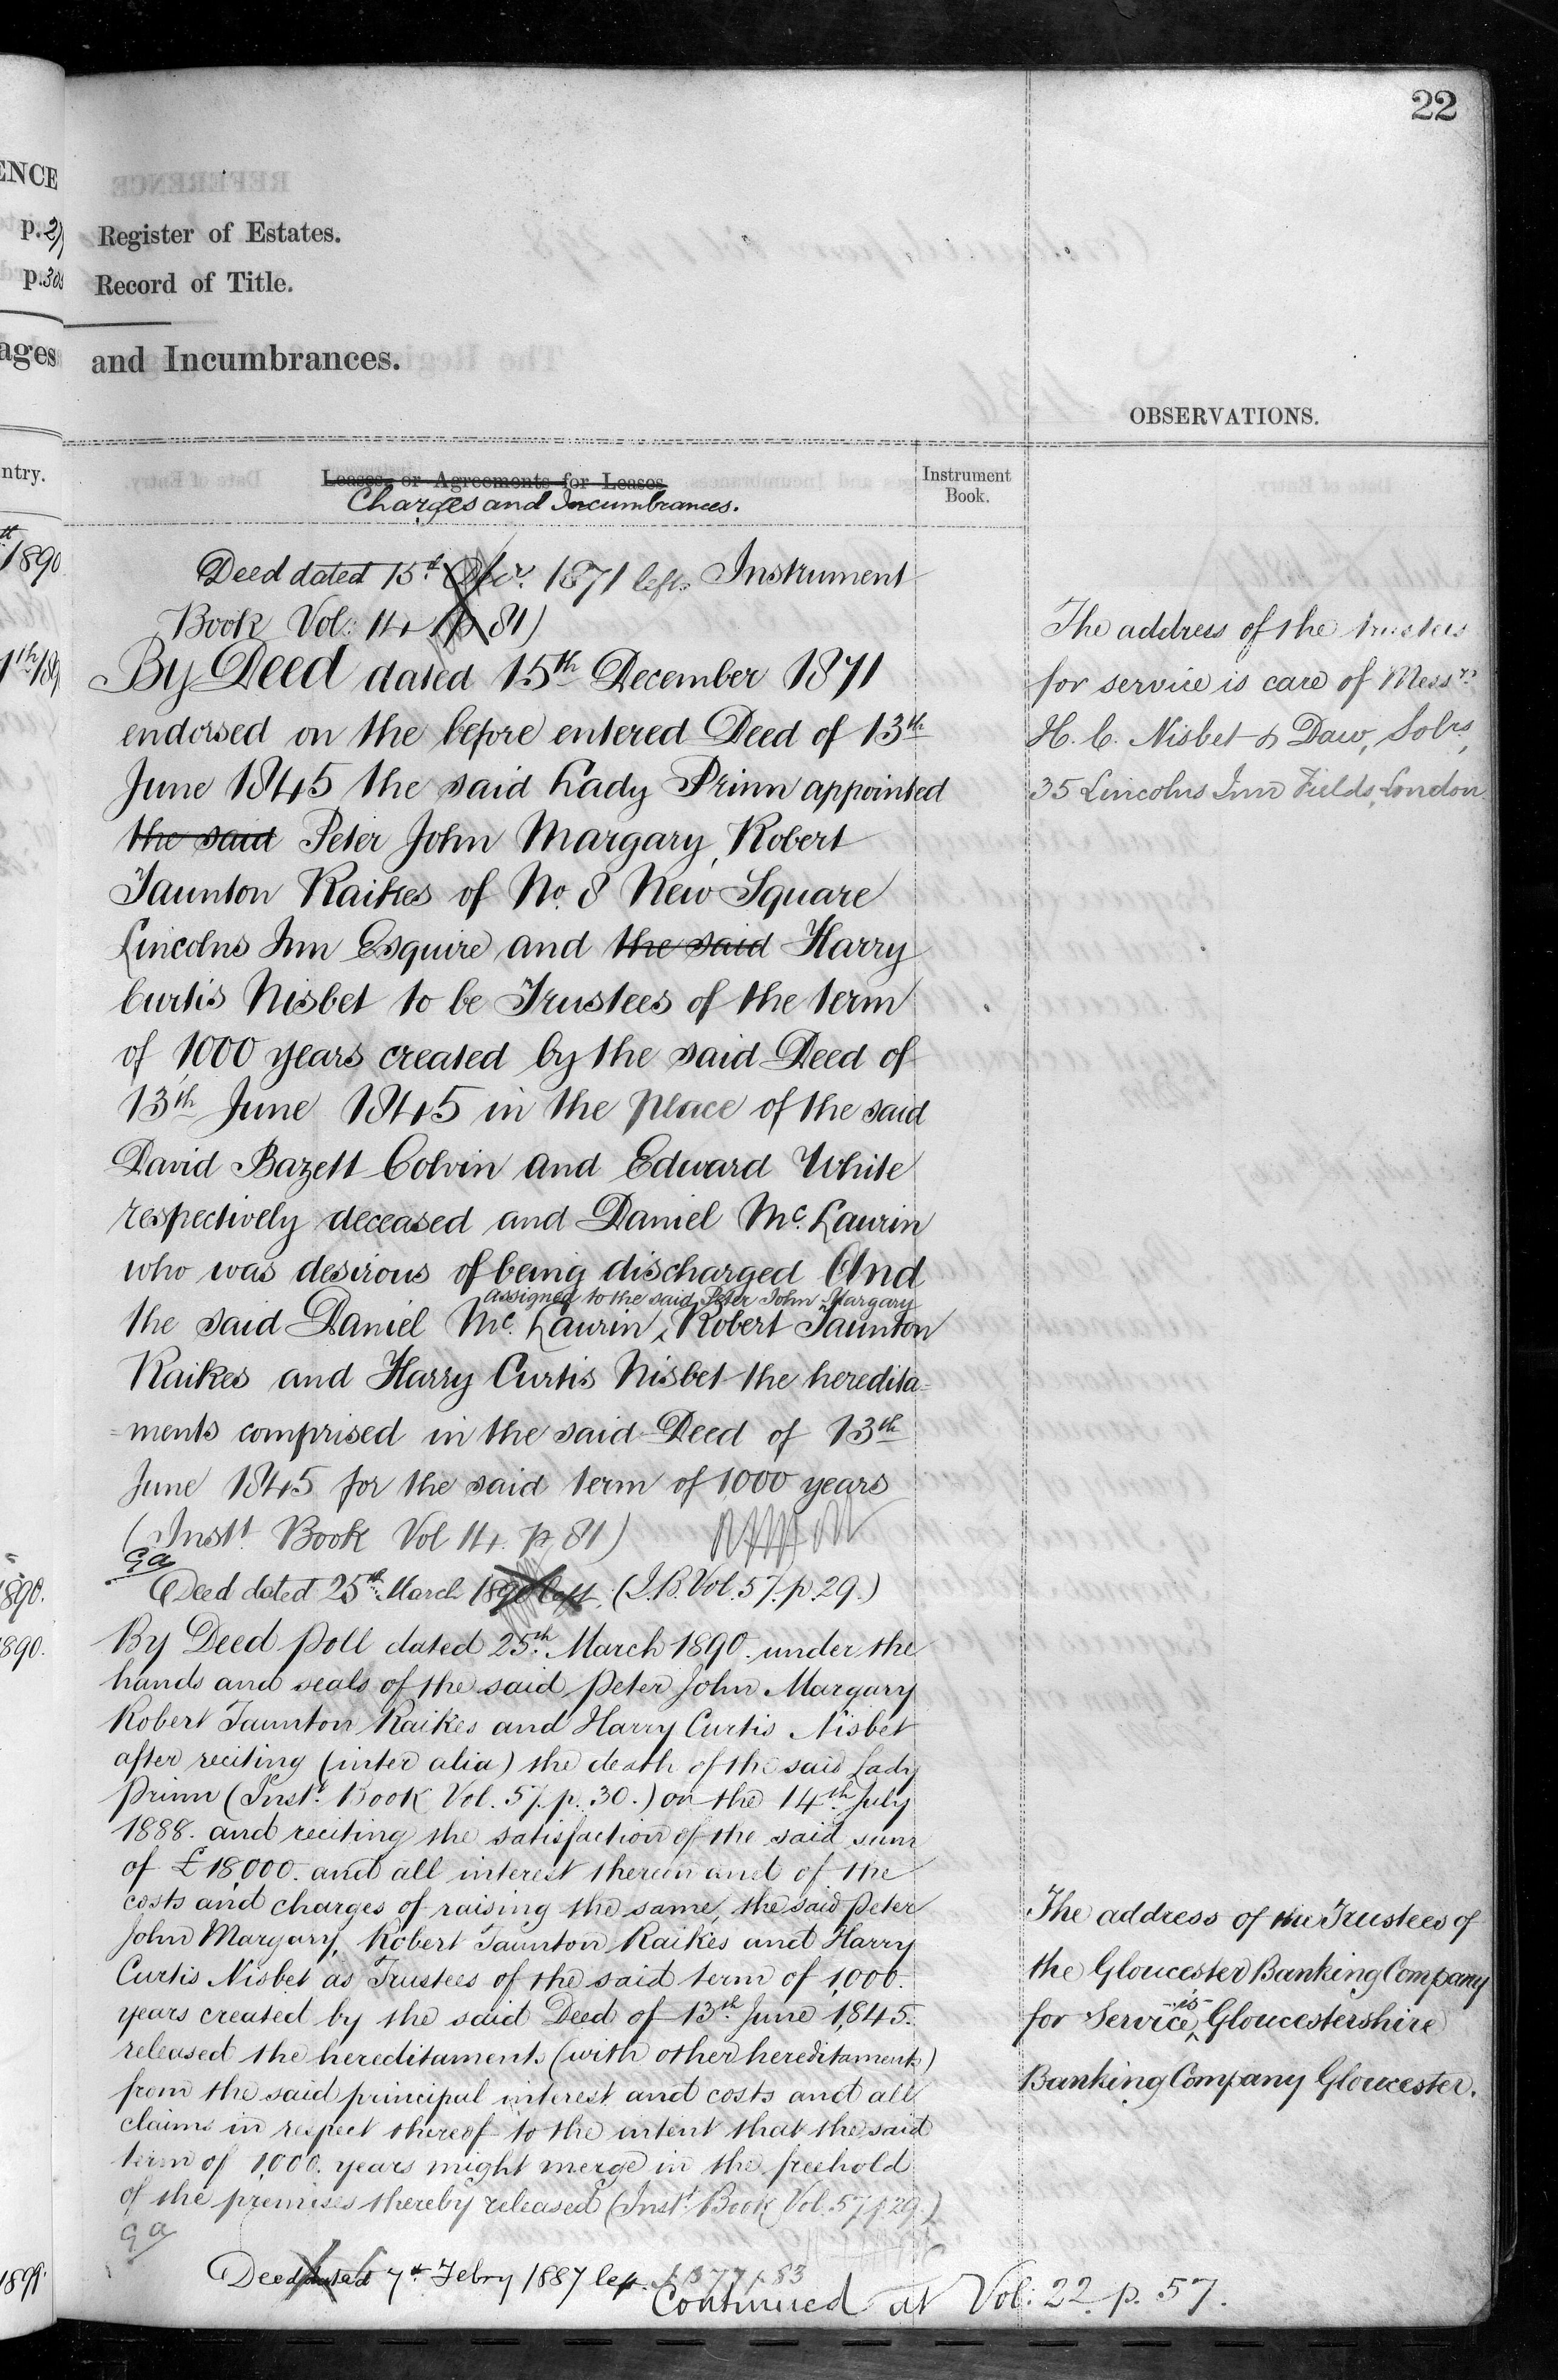 22
ENCE
p. 21
p. 305
ages
ntry.
1890
Register of Estates.
Record of Title.
and Incumbrances.
OBSERVATIONS.
Leases, or Agreements for Leases
Charges and Incumbrances.
Instrument
Book.
Deed dated 15th Decr. 1871 left. Instrument
Book Vol: 14 p 81)
By Deed dated 15th December 1871
endorsed on the before entered Deed of 13th
June 1845 the said Lady Prinn appointed
the said Peter John Margary, Robert
Taunton Raikes of No. 8 New Square
Lincolns Inn Esquire and the said Harry
Curtis Nisbet to be Trustees of the term
of 1000 years created by the said Deed of
13th June 1845 in the place of the said
David Bazett Colvin and Edward White
respectively deceased and Daniel Mc. Laurin
who was desirous of being discharged And
assigned to the said Peter John Margary
the said Daniel Mc. Laurin, Robert Taunton
Raikes and Harry Curtis Nisbet the heredita=
=ments comprised in the said Deed of 13th
June 1845 for the said term of 1000 years
(Inst. Book Vol 14. p 81)
Deed dated 25th March 1890 left. (I.B. Vol. 57. p. 29.)
By Deed Poll dated 25th March 1890. under the
hands and seals of the said Peter John Margary
Robert Taunton Raikes and Harry Curtis Nisbet
after reciting (inter alia) the death of the said Lady
Prinn (Inst. Book Vol. 57. p. 30.) on the 14th July
1888. and reciting the satisfaction of the said sum
of £18,000. and all interest thereon and of the
costs and charges of raising the same, the said Peter
John Margary, Robert Taunton Raikes and Harry
Curtis Nisbet as Trustees of the said term of 1,000.
years created by the said Deed of 13th June 1,845.
released the hereditaments (with other hereditaments)
from the said principal interest and costs and all
claims in respect thereof to the intent that the said
term of 1,000. years might merge in the freehold
of the premises thereby released (Inst. Book Vol. 57 p 29.)
Deed dated 7th Febry 1887 left. I B 77 p. 83
Continued at Vol: 22. p. 57.
The address of the trustees
for service is care of Messrs
H. C. Nisbet & Daw, Solrs,
35 Lincolns Inn Fields, London.
The address of the Trustees of
the Gloucester Banking Company
for Service is Gloucestershire
Banking Company Gloucester.
1890.
1890.